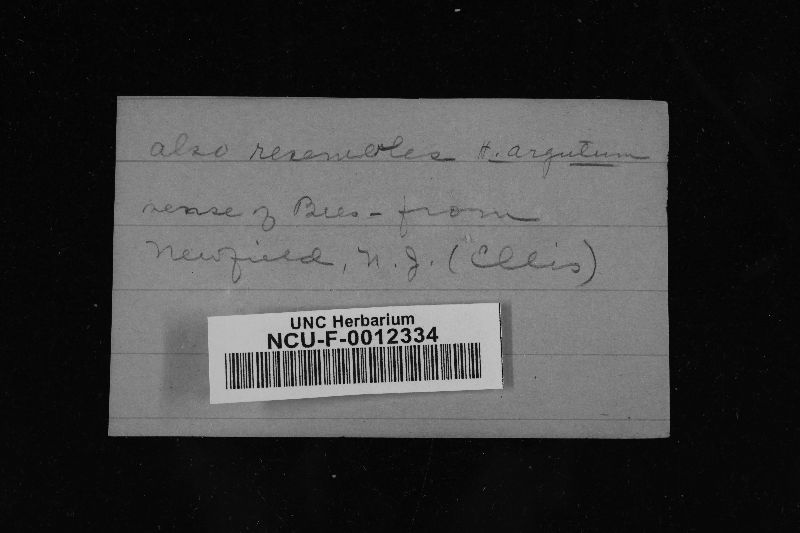 also resembles H. argutum
sense of Bres - from
Newfield, N. J. (Ellis)
UNC Herbarium
NCU-F-0012334